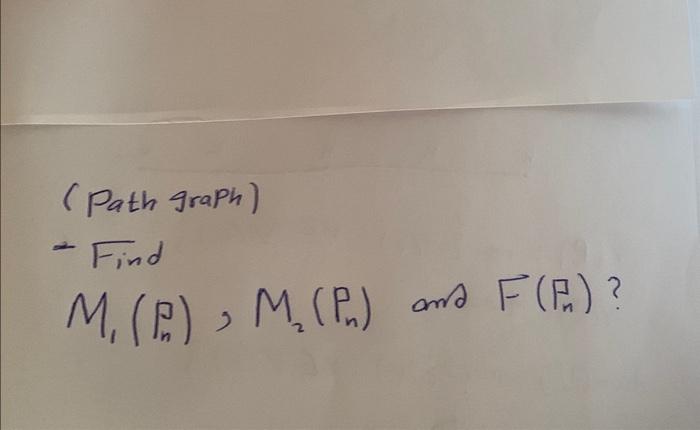 (Path graph)
- Find
M₁(Pₙ), M₂(Pₙ) and F(Pₙ)?